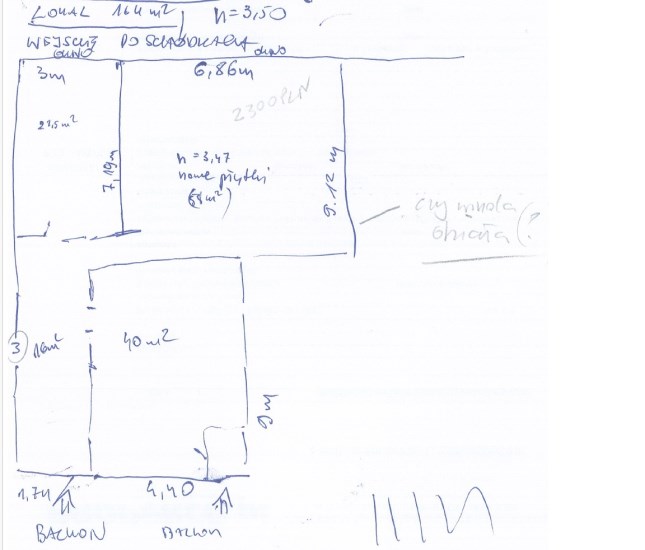 LOKAL 164 m² h=3,50
WEJSCIE PO SCHODKACH
OKNO
OKNO
3m
6,86m
2300 PLN
21,5 m²
7,19m
h=3,47
nowe płytki
(64 m²)
9.12 m
czy można
(?
3
16m²
40 m²
9 m
1,74
4,40
BALKON
BALKON